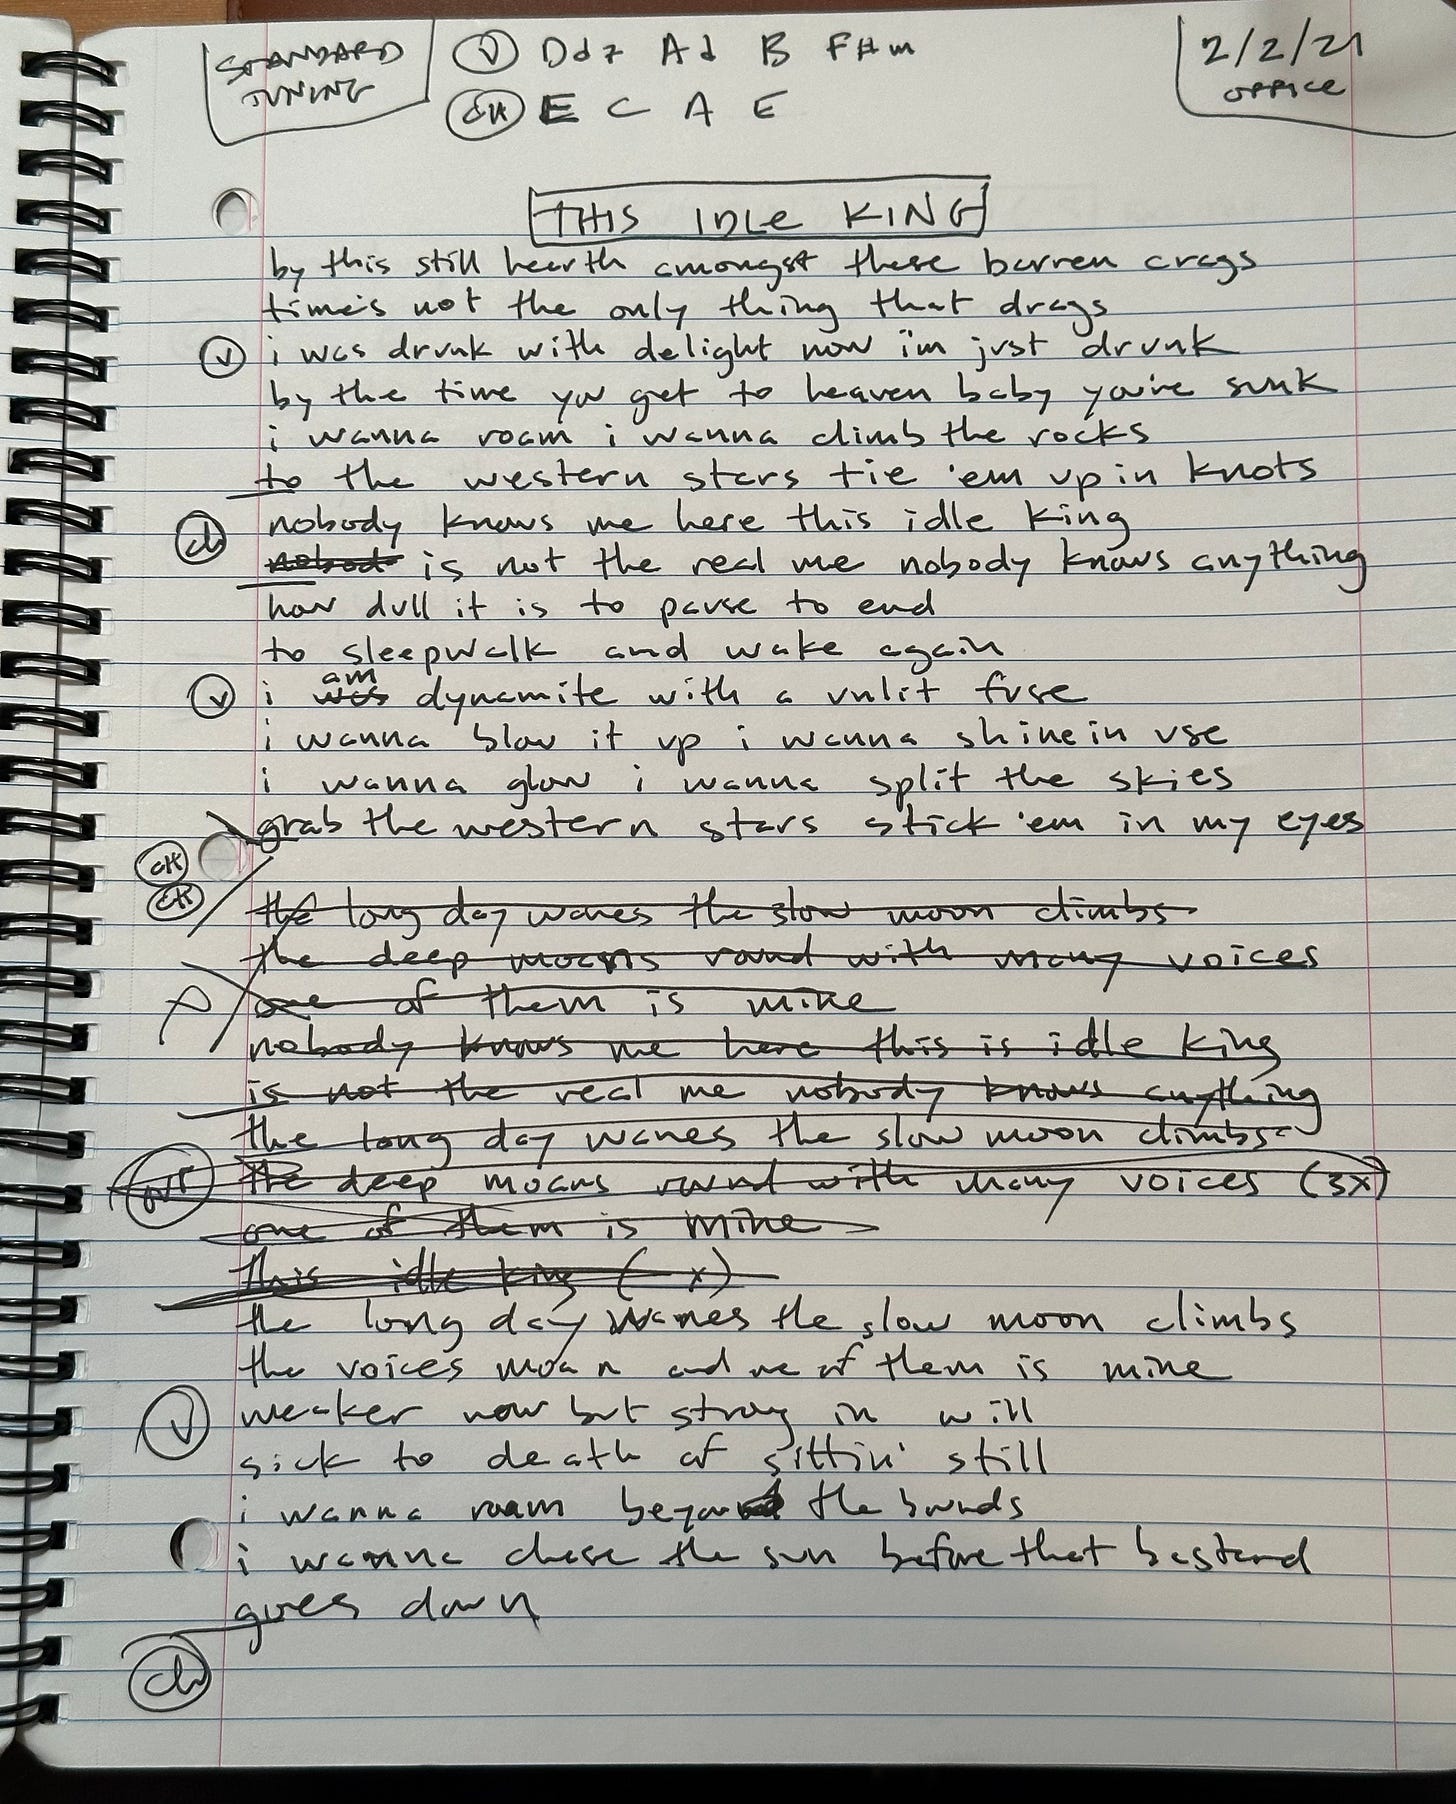 STANDARD TUNING
(V) Dd7 Ad B F#m
(CH) E C A E
2/2/21
OFFICE
THIS IDLE KING
by this still hearth amongst these barren crags
time's not the only thing that drags
(V) i was drunk with delight now i'm just drunk
by the time you get to heaven baby you're sunk
i wanna roam i wanna climb the rocks
to the western stars tie 'em up in knots
(ch) nobody knows me here this idle king
nobod is not the real me nobody knows anything
how dull it is to pause to end
to sleepwalk and wake again
am
(V) i was dynamite with a unlit fuse
i wanna blow it up i wanna shine in use
i wanna glow i wanna split the skies
grab the western stars stick 'em in my eyes
(CH)
(CH) the long day wanes the slow moon climbs
the deep moans round with many voices
one of them is mine
nobody knows me here this is idle king
is not the real me nobody knows anything
the long day wanes the slow moon climbs
the deep moans round with many voices (3x)
one of them is mine
this idle king ( x)
the long day wanes the slow moon climbs
the voices moan and one of them is mine
(V) weaker now but strong in will
sick to death of sittin' still
i wanna roam beyond the bounds
i wanna chase the sun before that bastard
goes down
(ch)